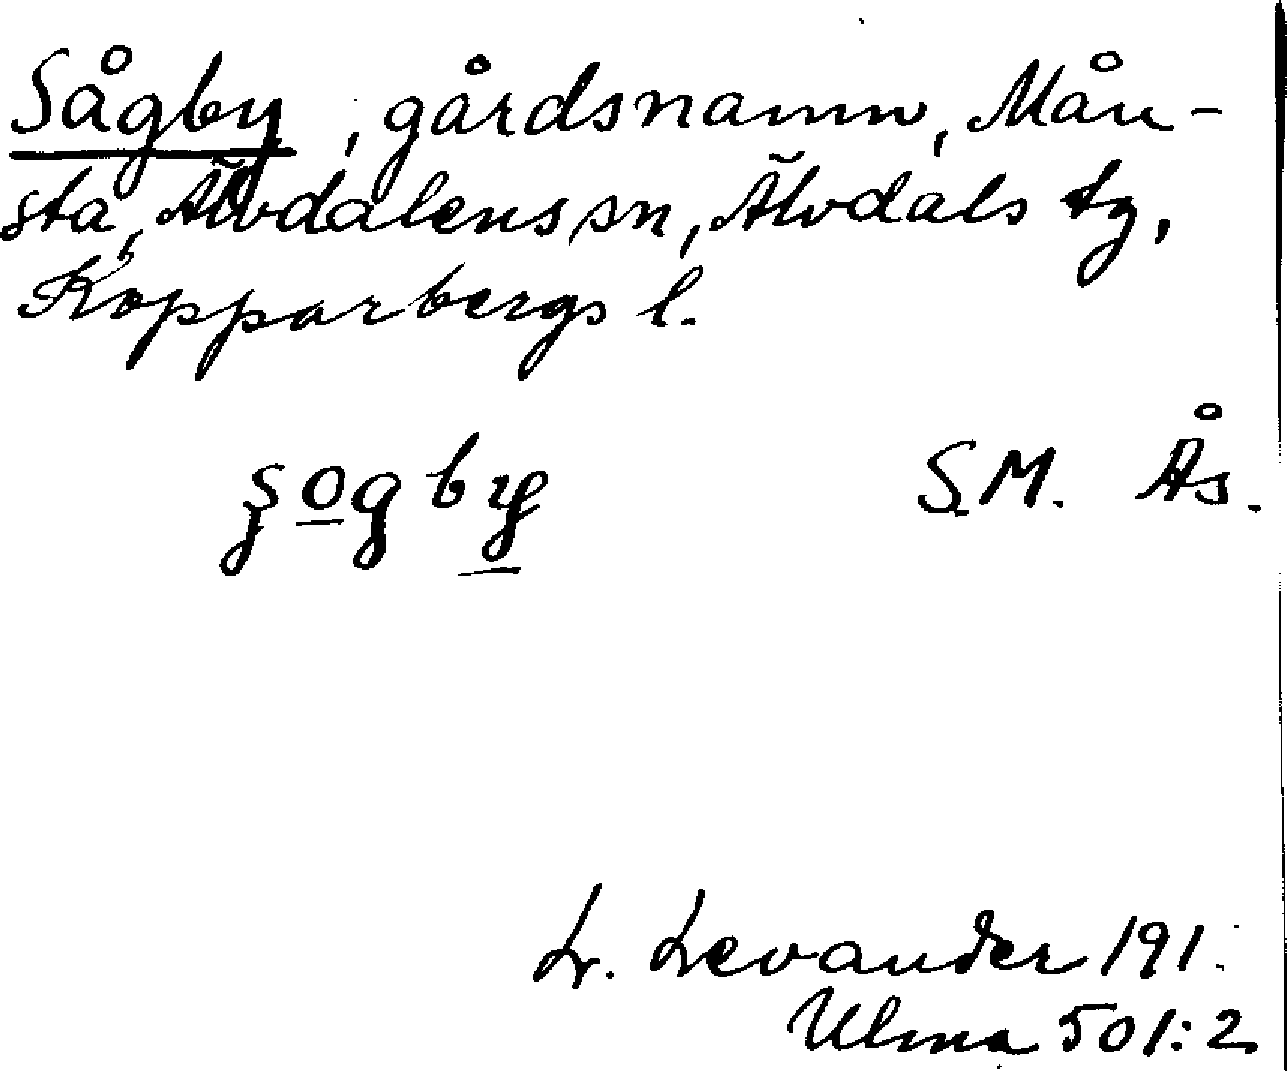 Sågby, gårdsnamn, Mån-
sta, Älvdalens sn, Älvdals tg,
Kopparbergs l.
sogby S.M. Ås.
L. Levander 191.
Ulma 501:2